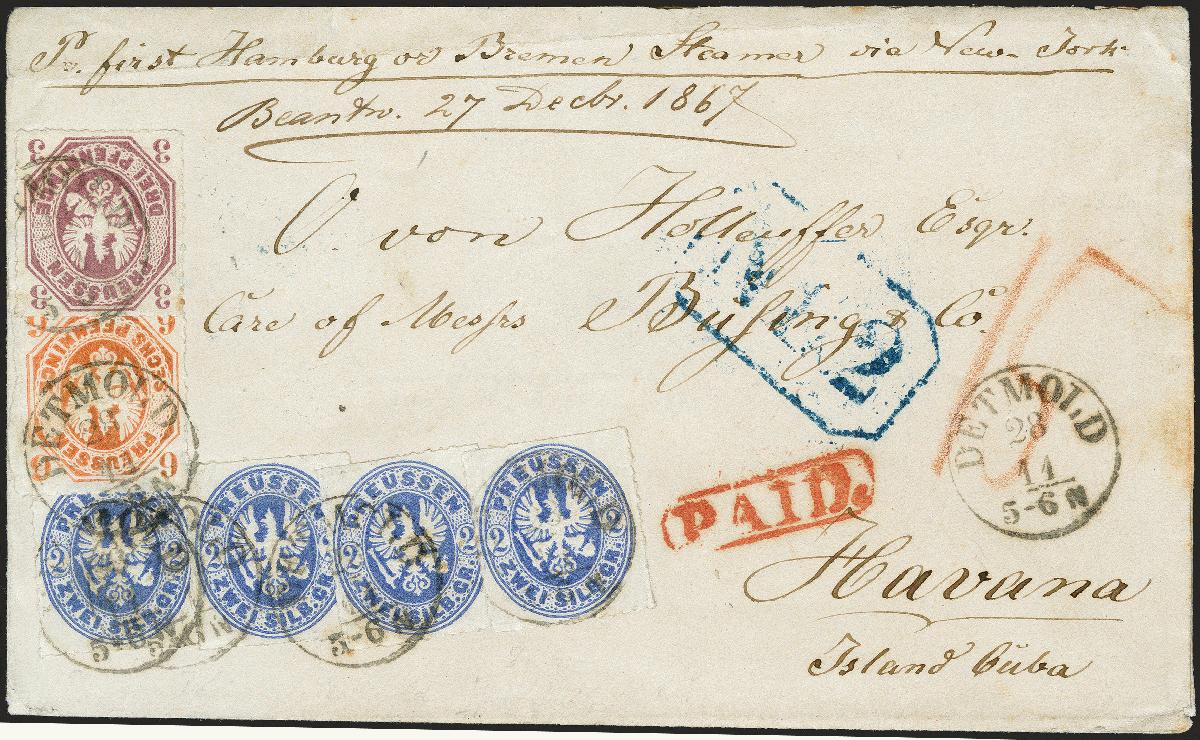 Pr. first Hamburg or Bremen Steamer via New-York
Beantw. 27 Decbr. 1867
O. von Holleuffer Esqr.
Care of Messrs Büsing & Co.
Havana
Island Cuba
3 DREI PFENNINGE 3
3 PREUSSEN 3
6 SECHS PFENNINGE 6
6 PREUSSEN 6
DETMOLD
PREUSSEN
2 2
ZWEI SILB.GR.
PREUSSEN
2
ZWEI SILB.GR.
PREUSSEN
2 2
ZWEI SILB.GR.
PREUSSEN
2 2
ZWEI SILB.GR.
5-6
2
PAID.
DETMOLD
28
11
5-6 N